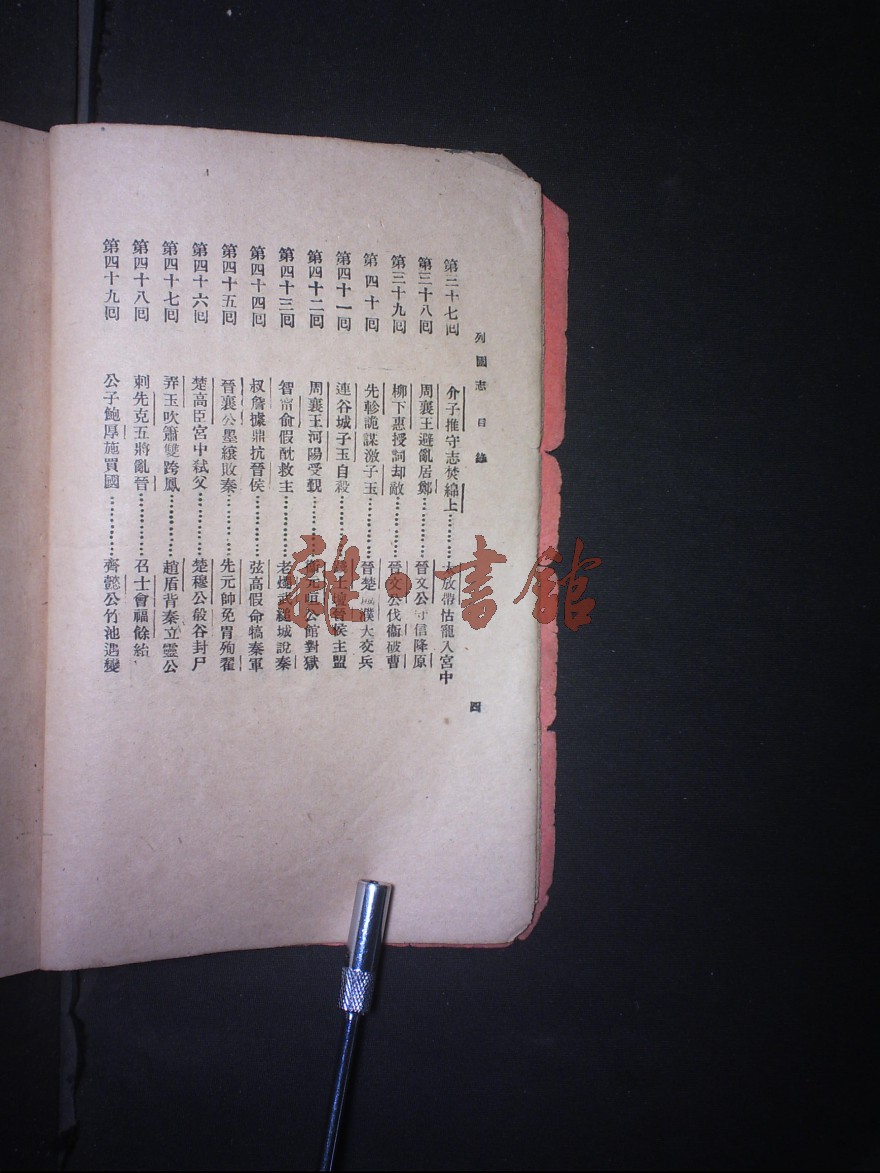 列國志 目錄 四
第三十七回 介子推守志焚綿上…………太放帶怙寵入宮中
第三十八回 周襄王避亂居鄭…………晉文公守信降原
第三十九回 柳下惠授詞却敵…………晉文公伐衞破曹
第四十回 先軫詭謀激子玉…………晉楚城濮大交兵
第四十一回 連谷城子玉自殺…………踐土壇晉侯主盟
第四十二回 周襄王河陽受覲…………衞元咺公館對獄
第四十三回 智甯俞假酖救主…………老燭武縋城說秦
第四十四回 叔詹據鼎抗晉侯…………弦高假命犒秦軍
第四十五回 晉襄公墨縗敗秦…………先元帥免胄殉翟
第四十六回 楚商臣宮中弒父…………楚穆公殽谷封尸
第四十七回 弄玉吹簫雙跨鳳…………趙盾背秦立靈公
第四十八回 刺先克五將亂晉…………召士會福餘紿
第四十九回 公子鮑厚施買國…………齊懿公竹池遇變
雜·書館